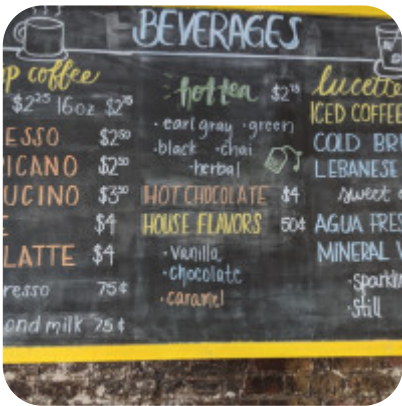 BEVERAGES
p coffee
$2²⁵ 16oz $2⁷⁵
ESSO $2⁵⁰
ICANO $2⁵⁰
UCINO $3⁵⁰
E $4
LATTE $4
resso 75¢
ond milk 75¢
hot tea $2⁷⁵
· earl gray · green
· black · chai
· herbal
HOT CHOCOLATE $4
HOUSE FLAVORS 50¢
· vanilla
· chocolate
· caramel
lucette
ICED COFFEE
COLD BR
LEBANESE
sweet
AGUA FRES
MINERAL
· sparkli
· still